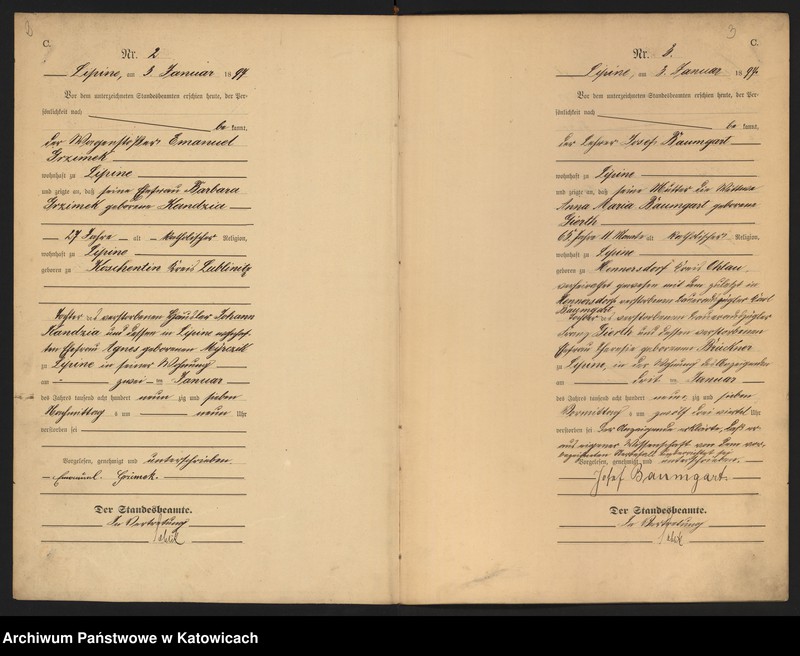 C.
Nr. 2
Lipine, am 3. Januar 1897.
Vor dem unterzeichneten Standesbeamten erschien heute, der Per-
sönlichkeit nach
be kannt,
der Wagenstößer Emanuel
Grzimek
wohnhaft zu Lipine
und zeigte an, daß seine Ehefrau Barbara
Grzimek geborene Kandzia
27 Jahre alt Katholischer Religion,
wohnhaft zu Lipine
geboren zu Koschentin Kreis Lublinitz
Tochter des verstorbenen Häusler Johann
Kandzia und dessen in Lipine
Ehefrau Agnes geborenen
zu Lipine in seiner Wohnung
am zwei ten Januar
des Jahres tausend acht hundert neun zig und sieben
Nachmittag s um neun Uhr
verstorben sei
Vorgelesen, genehmigt und unterschrieben.
Emanuel Grzimek.
Der Standesbeamte.
In Vertretung
3
C.
Nr. 3.
Lipine, am 3. Januar 1897.
Vor dem unterzeichneten Standesbeamten erschien heute, der Per-
sönlichkeit nach
be kannt,
der Lehrer Josef Baumgart
wohnhaft zu Lipine
und zeigte an, daß seine Mutter die Wittwe
Anna Maria Baumgart geborene
Gierth
65 Jahre 11 Monate alt Katholischer Religion,
wohnhaft zu Lipine
geboren zu Hennersdorf Kreis Ohlau,
verheirathet gewesen mit dem zuletzt in
Hennersdorf verstorbenen Karl
Baumgart,
Tochter des verstorbenen
Franz Gierth und dessen verstorbenen
Ehefrau Theresia geborenen Brückner
zu Lipine, in der Wohnung des Anzeigenden
am drit ten Januar
des Jahres tausend acht hundert neun zig und sieben
Vormittag s um zwölf drei viertel Uhr
verstorben sei Der Anzeigende erklärte, daß er
aus eigener Wissenschaft von dem vor-
bezeichneten Sterbefall unterrichtet sei
Vorgelesen, genehmigt und unterschrieben.
Josef Baumgart.
Der Standesbeamte.
In Vertretung
Archiwum Państwowe w Katowicach